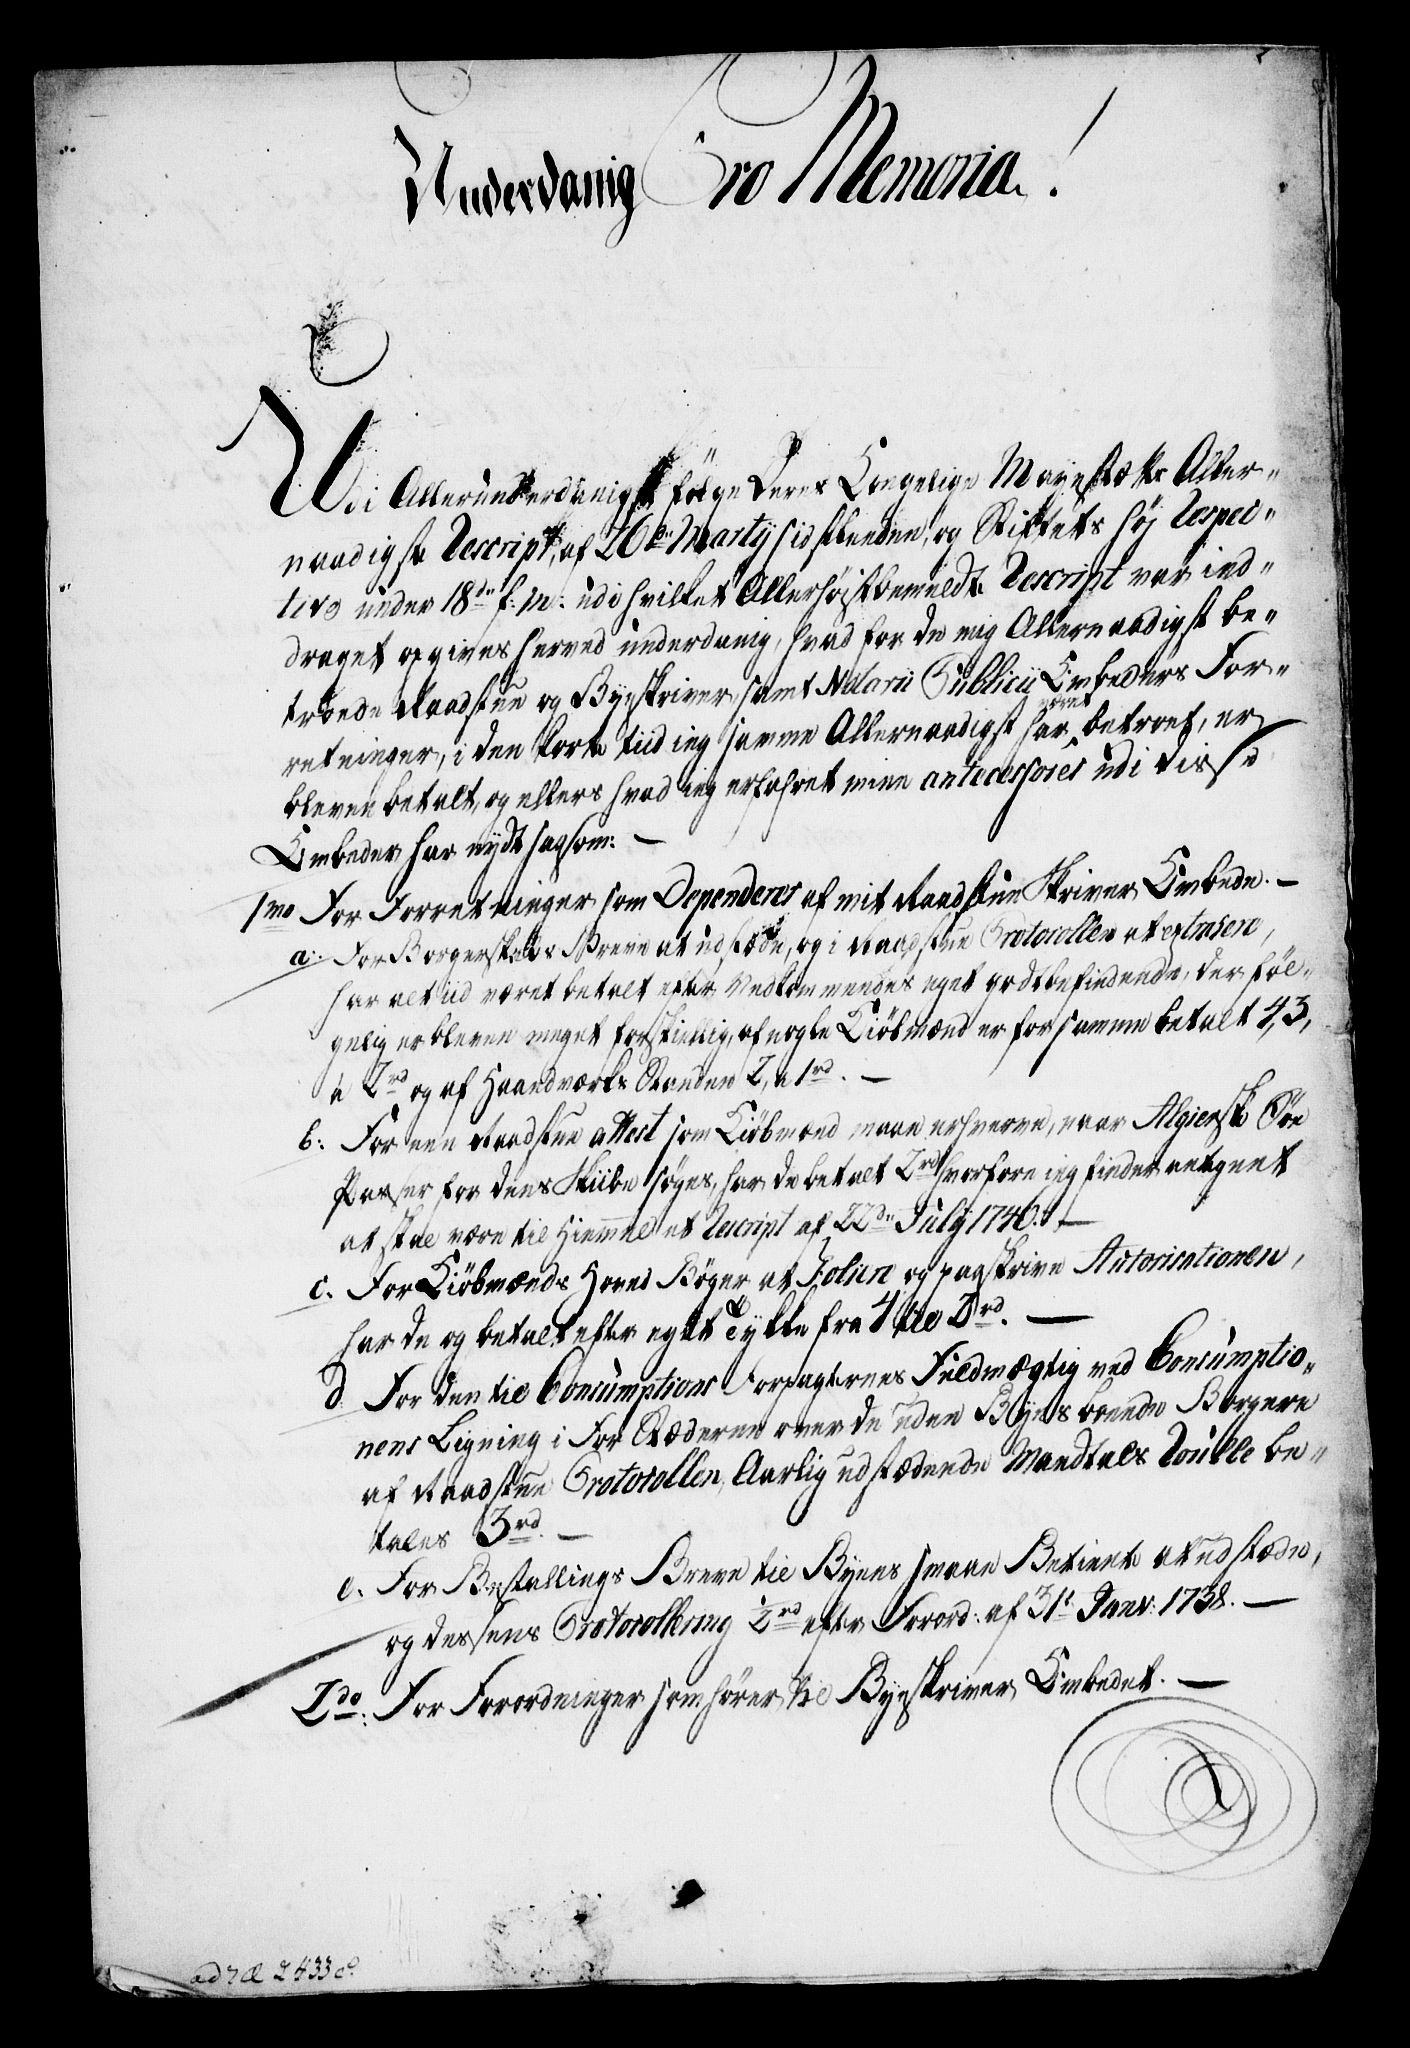 Underdanig Pro Memoria!
Udi Allerunderdanigst følge Deres Kongelige Mayestæts Aller-
naadigste Rescript, af 26de Marty sidstleeden, og Stiftets høj respec-
tive under 18de f: M: udi hvilket Allerhøjstbemeldte Rescript var ind-
draget opgives herved underdanig, hvad for de mig Allernaadigst be-
troede Raadstue og Byeskriver samt Notarii Publicij Embeders For-
retninger, i den korte tiid ieg samme Allernaadigst har været betroet, er
bleven betalt, og ellers hvad ieg erfahret mine antecessores udi disse
Embeder har nydt saasom: —
1mo For Forretninger som Dependeres af mit Raadstue Skriver Embede. —
a: For Borgerskabs Breve at udstæde, og i Raadstue Protocollen at extrasere,
har altiid været betalt efter Vedkommendes eget godtbefindende, der føl-
gelig er bleven meget forskiellig, af nogle Kiøbmænd er for samme betalt 4, 3,
a 2rd og af Haandværks Standen 2, a 1rd. —
b: For een Raadstue attest som Kiøbmænd maae erhverve, naar Algiersk Søe
Passer for dens Skiibe søges, har de betalt 2rd hvorfore ieg finder antegnet
at skal være til Hiemmel et Rescript af 22de July 1746. —
c. For Kiøbmænds Hoved Bøger at Foliere og paaskrive Autorisationen,
har de og betalt efter eget Tykke fra 4 til 2rd. —
d. For den til Consumptions Forpagternes Fuldmægtig ved Consumptio-
nens Ligning i For Stæderne over de uden Byens boende Borgere
af Raadstue Protocollen, Aarlig udstædende Mandtals Roulle be-
tales 3rd. —
e. For Bestallings Breve til Byens smaae Betiente at udstæde,
og dessens Protocollering 2rd efter Forord: af 31t Janv: 1738. —
2do: For Forordninger som hører til Byeskriver Embedet. —
ad No 2433 c.